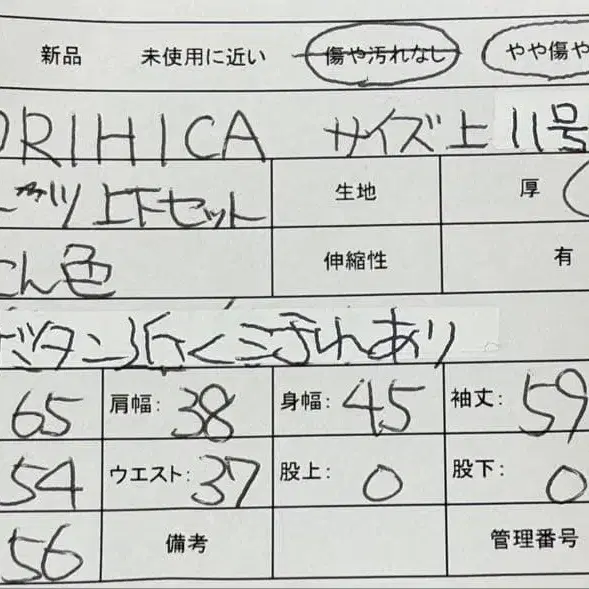 新品 未使用に近い 傷や汚れなし やや傷や
ORIHICA サイズ上 11号
ーツ 上下セット 生地 厚
こん色 伸縮性 有
ボタン近くに汚れあり
65 肩幅: 38 身幅: 45 袖丈: 59
54 ウエスト: 37 股上: 0 股下: 0
56 備考 管理番号